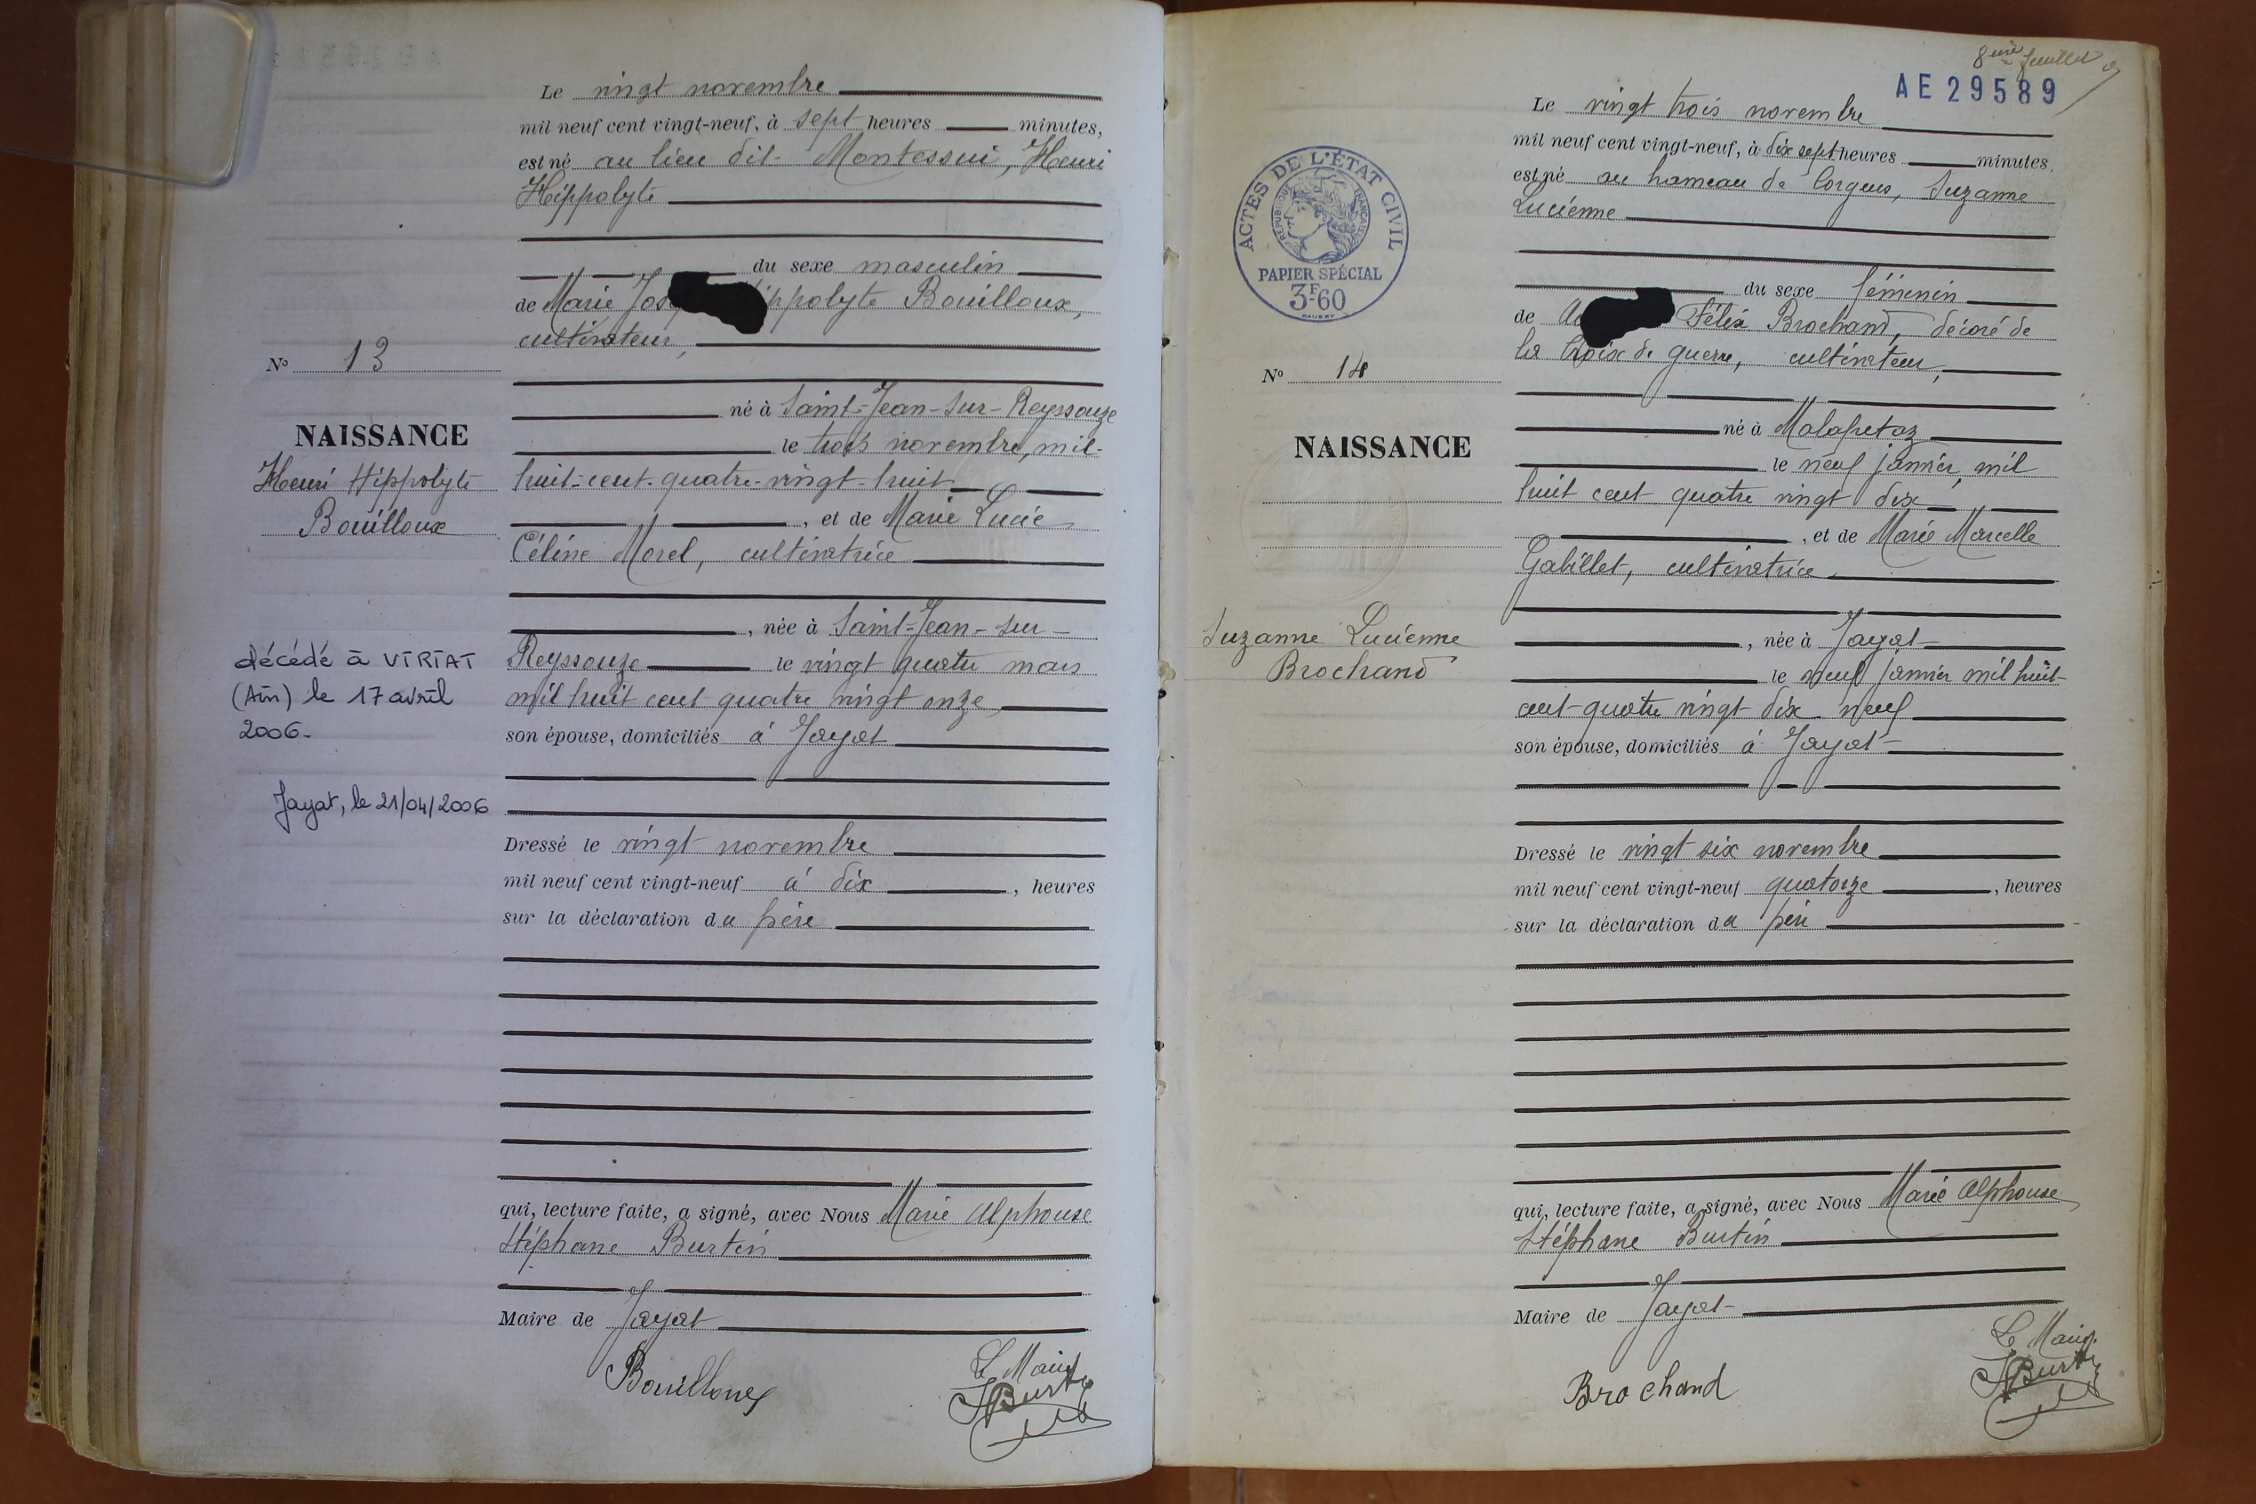 Le vingt novembre
mil neuf cent vingt-neuf, à sept heures minutes,
est né au lieu dit Montessui, Henri
Hippolyte
du sexe masculin
de Marie Jos ippolyte Bouilloux,
cultivateur,
né à Saint-Jean-sur-Reyssouze
le trois novembre, mil-
huit-cent-quatre-vingt-huit
, et de Marie Lucie
Céline Morel, cultivatrice
, née à Saint-Jean-sur-
Reyssouze le vingt quatre mars
mil huit cent quatre vingt onze
son épouse, domiciliés à Jayat
Dressé le vingt novembre
mil neuf cent vingt-neuf à dix , heures
sur la déclaration du père
qui, lecture faite, a signé, avec Nous Marie Alphonse
Stéphane Burtin
Maire de Jayat
Bouilloux
Le Maire
SBurtin
No 13
NAISSANCE
Henri Hippolyte
Bouilloux
décédé à VIRIAT
(Ain) le 17 avril
2006.
Jayat, le 21/04/2006
8ème feuillet
AE 29589
Le vingt trois novembre
mil neuf cent vingt-neuf, à dix sept heures minutes.
est né au hameau de Corgeus, Suzanne
Lucienne
du sexe féminin
de Félix Brochand, décoré de
la Croix de guerre, cultivateur,
né à Malafretaz
le neuf janvier mil
huit cent quatre vingt dix
, et de Marie Marcelle
Gabillet, cultivatrice
, née à Jayat
le neuf janvier mil huit-
cent-quatre vingt dix neuf
son épouse, domiciliés à Jayat
Dressé le vingt six novembre
mil neuf cent vingt-neuf quatorze , heures
sur la déclaration du père
qui, lecture faite, a signé, avec Nous Marie Alphonse
Stéphane Burtin
Maire de Jayat
Brochand
Le Maire
SBurtin
ACTES DE L'ÉTAT CIVIL
RÉPUBLIQUE FRANÇAISE
PAPIER SPÉCIAL
3F.60
No 14
NAISSANCE
Suzanne Lucienne
Brochand